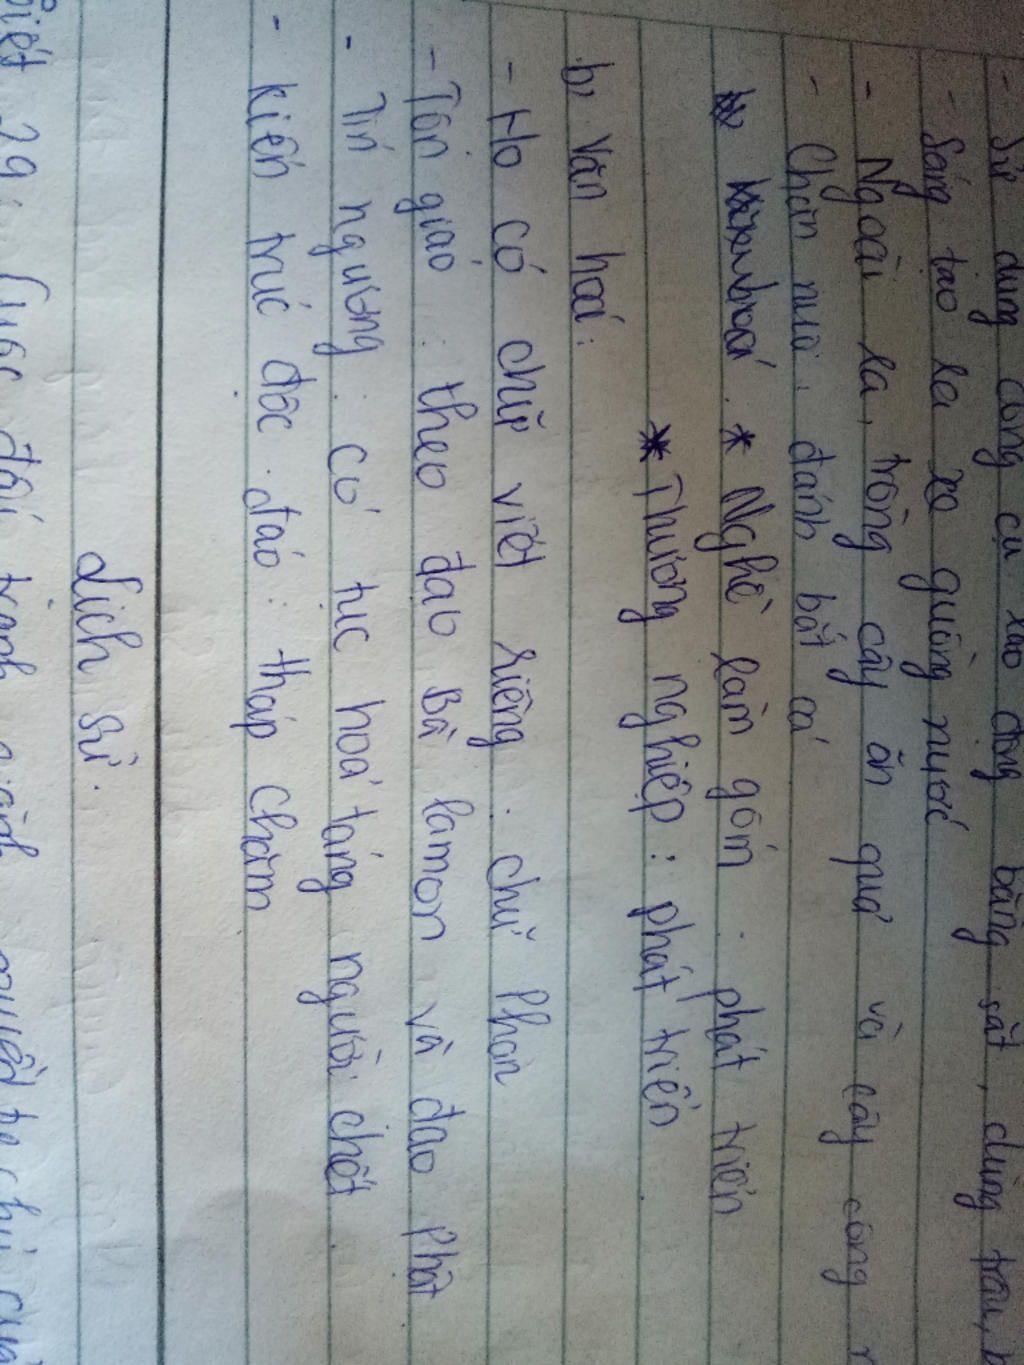 - Sử dụng công cụ lao động bằng sắt, dùng trâu,
- Sáng tạo la xe guồng nước
- Ngoài la, trồng cây ăn quả và cây công
- Chăn nuôi, đánh bắt cá
* Nghề làm gốm : phát triển
* Thương nghiệp : phát triển
b, Văn hoá:
- Họ có chữ viết riêng : chữ Phạn
- Tôn giáo : theo đạo Bà lamon và đạo Phật
- Tín ngưỡng : có tục hoả táng người chết.
- Kiến trúc độc đáo : tháp chăm
Lịch sử.
29 : Cuộc đấu tranh giành quyền tự chủ